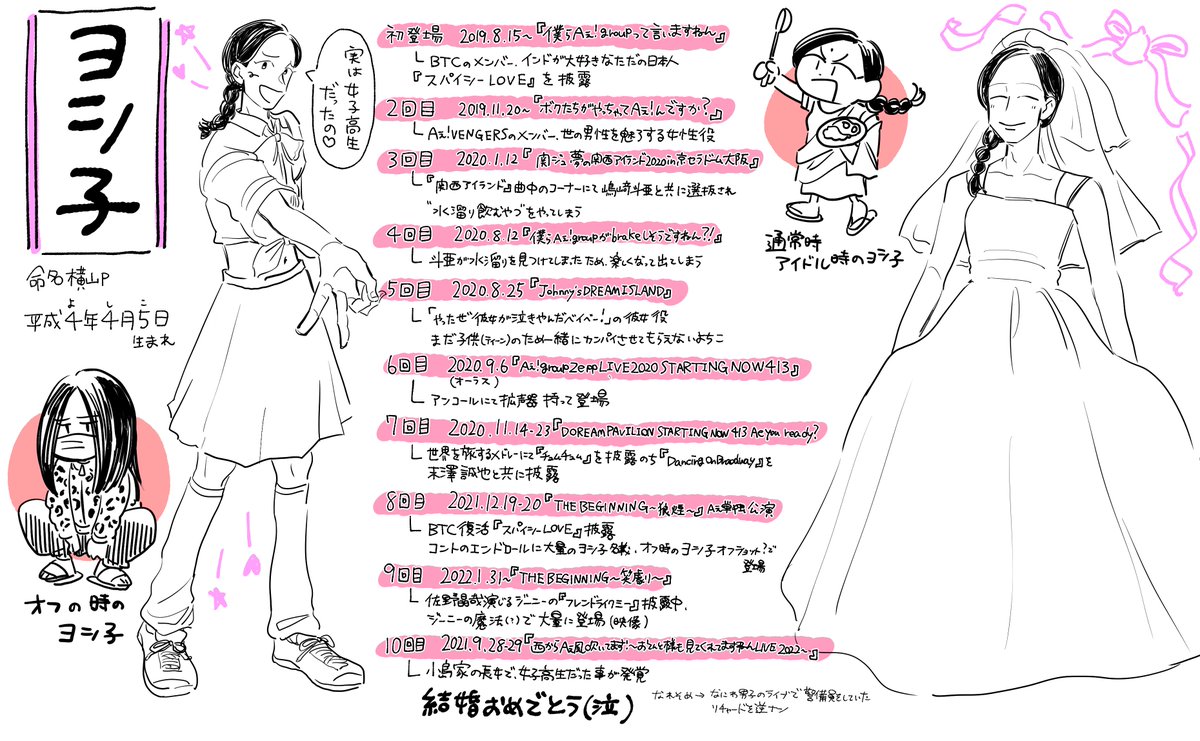 ヨシ子
命名横山P
よ し こ
平成4年4月5日
生まれ
オフの時の
ヨシ子
実は女子高生
だったの♡
初登場 2019.8.15〜『僕らAぇ!groupって言いますねん』
BTCのメンバー、インドが大好きなただの日本人
『スパイシーLOVE』を披露
2回目 2019.11.20〜『ボクたちがやっちゃってAぇ!んですか?』
Aぇ!VENGERSのメンバー、世の男性を魅了する女性役
3回目 2020.1.12『関ジュ 夢の関西アイランド2020 in 京セラドーム大阪』
『関西アイランド』曲中のコーナーにて嶋﨑斗亜と共に選抜され
"水溜り飲むやつ"をやってしまう
4回目 2020.8.12『僕らAぇ!groupがbrakeしそうですねん?!』
斗亜が水溜りを見つけてしまったため、楽しくなって出てしまう
5回目 2020.8.25『Johnny's DREAM ISLAND』
「やったぜ!彼女が泣きやんだベイベー!」の彼女役
まだ子供(ティーン)のため一緒にカンパイさせてもらえないよちこ
6回目 2020.9.6『Aぇ!group Zepp LIVE 2020 STARTING NOW 413』
(オーラス)
アンコールにて拡声器持って登場
7回目 2020.11.14-23『DOREAM PAVILION STARTING NOW 413 Ae you ready?
世界を旅するメドレーにて『チュムチュム』を披露のち『Dancing On Broadway』を
末澤誠也と共に披露
8回目 2021.12.19-20『THE BEGINNING〜狼煙〜』Aぇ単独公演
BTC復活『スパイシーLOVE』披露
コントのエンドロールに大量のヨシ子名義、オフ時のヨシ子オフショット?で
登場
9回目 2022.1.31〜『THE BEGINNING〜笑虎り〜』
佐野晶哉演じるジーニーの『フレンドライクミー』披露中、
ジーニーの魔法(?)で大量に登場(映像)
10回目 2021.9.28-29『西からAぇ風吹いてます!〜おてんと様も見てくれてますねんLIVE 2022〜』
小島家の長女で、女子高生だった事が発覚
結婚おめでとう(泣)
なれそめ→なにわ男子のライブで警備員をしていた
リチャードを逆ナン
通常時
アイドル時のヨシ子